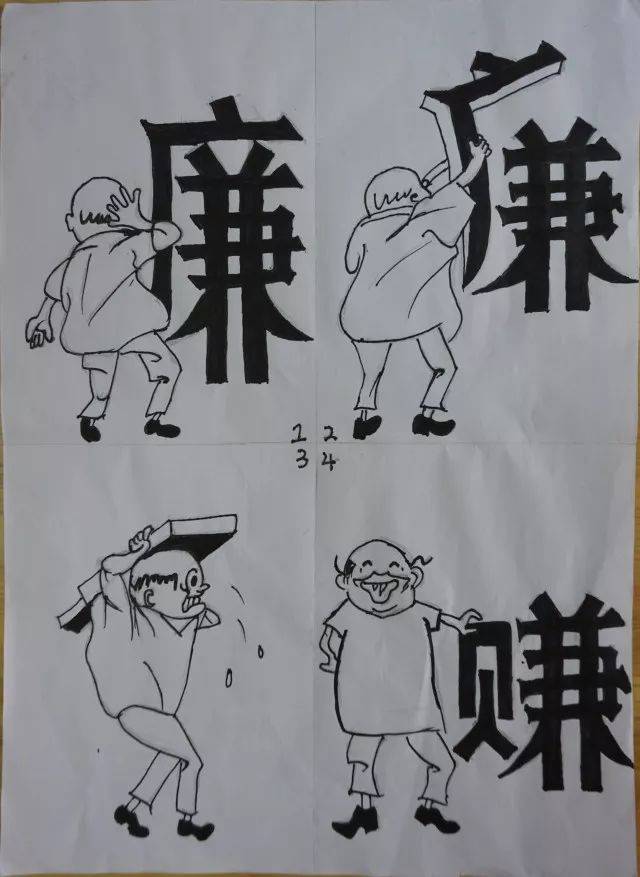 廉
广兼
1 2
3 4
赚